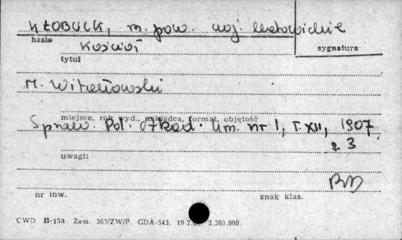 KŁOBUCK, m. pow. woj. katowickie
hasło
Kościół
sygnatura
tytuł
M. Witanowski
miejsce, rok wyd., nakładca, format, objętość
Spraw. Pol. Akad. Um. nr 1, T. XII, 1907,
s. 3
uwagi:
nr inw.
znak klas.
CWD. B-15a. Zam. 363/ZW/P. GDA-543. 2.260.000.